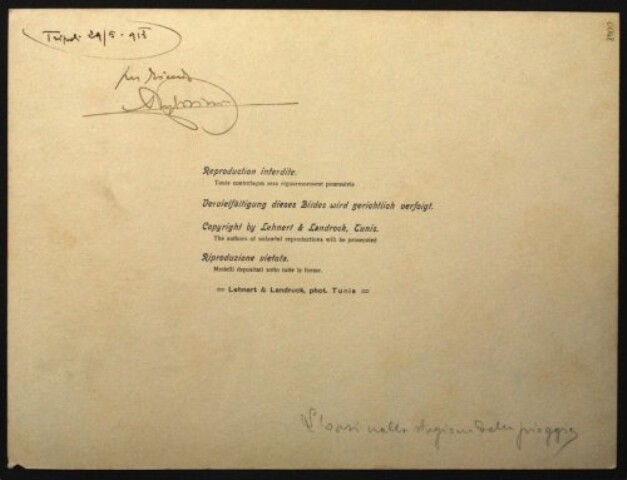 Tripoli 29/8 - 913
per ricordo
Reproduction interdite.
Toute contrefaçon sera rigoureusement poursuivie
Vervielfältigung dieses Bildes wird gerichtlich verfolgt.
Copyright by Lehnert & Landrock, Tunis.
The authors of unlawful reproductions will be prosecuted
Riproduzione vietata.
Modelli depositati sotto tutte le forme.
= Lehnert & Landrock, phot. Tunis =
L'oasi nella stagione delle piogge